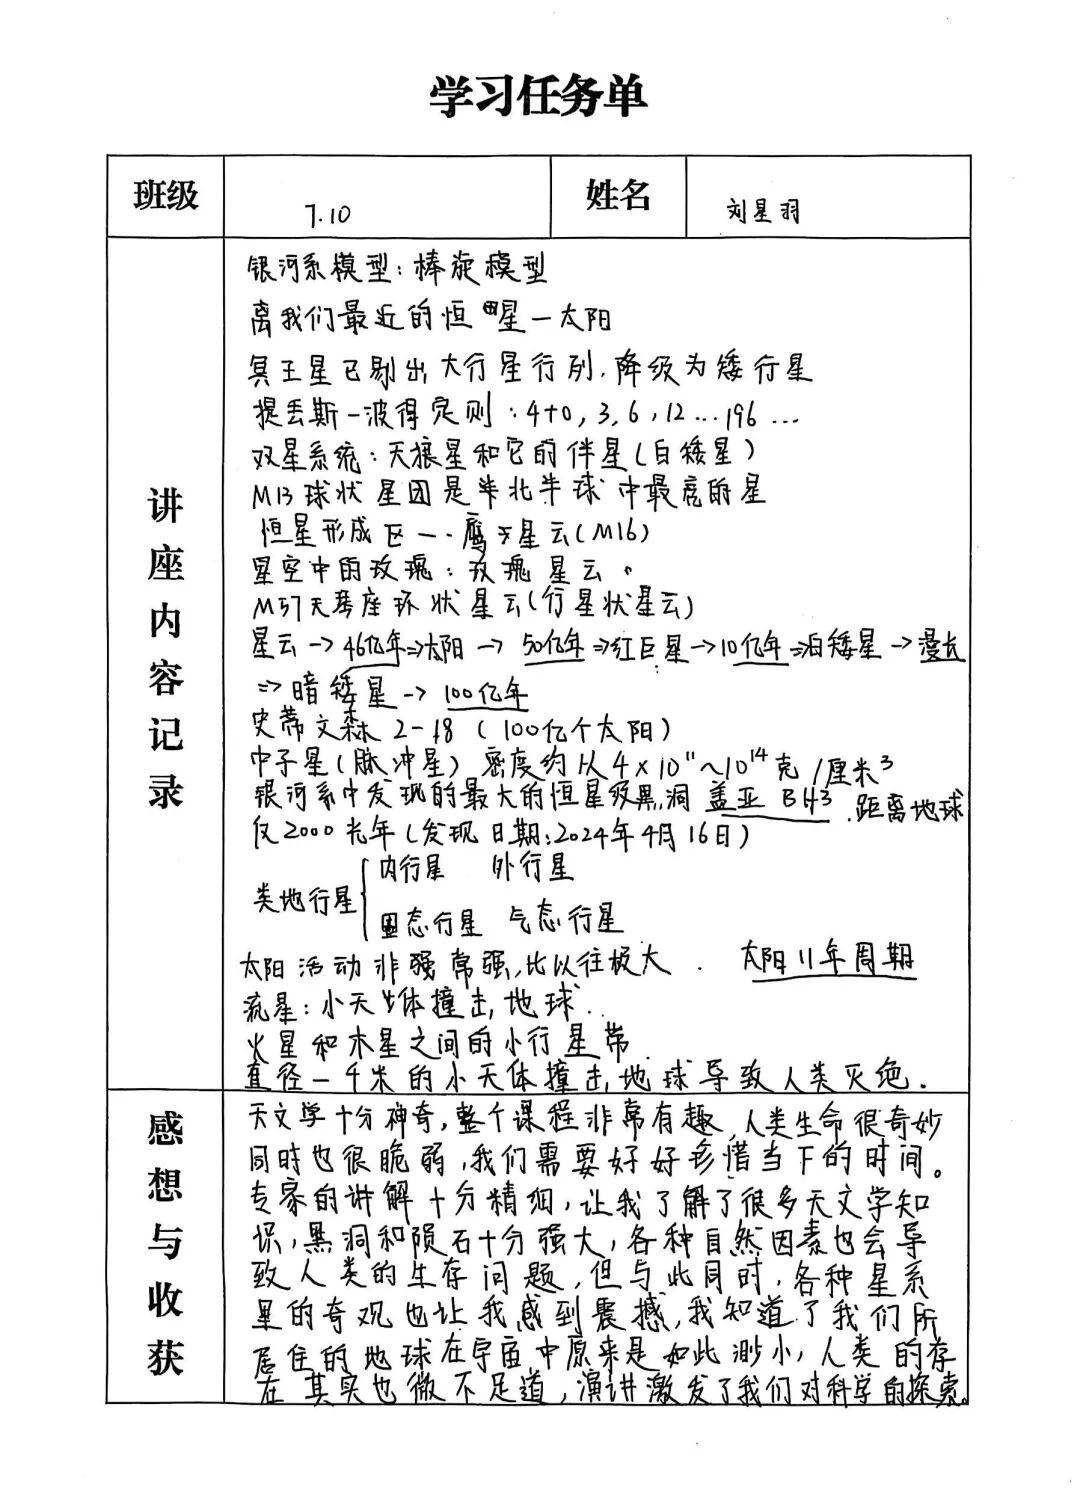 学习任务单
班级 7.10 姓名 刘星羽
讲座内容记录
银河系模型：棒旋模型
离我们最近的恒星—太阳
冥王星已剔出大行星行列，降级为矮行星
提丢斯—波得定则：4+0，3，6，12…196…
双星系统：天狼星和它的伴星（白矮星）
M13球状星团是北半球中最亮的星
恒星形成区—·鹰状星云（M16）
星空中的玫瑰：玫瑰星云。
M57天琴座环状星云（行星状星云）
星云→46亿年⇒太阳→50亿年⇒红巨星→10亿年⇒白矮星→漫长
⇒暗矮星→100亿年
史蒂文森2-18（100亿个太阳）
中子星（脉冲星）密度约从4×10¹¹~10¹⁴克/厘米³
银河系中发现的最大的恒星级黑洞盖亚BH3.距离地球
仅2000光年（发现日期：2024年4月16日）
类地行星{内行星 外行星
固态行星 气态行星
太阳活动非常强，比以往极大. 太阳11年周期
流星：小天体撞击地球..
火星和木星之间的小行星带.
直径一千米的小天体撞击地球导致人类灭绝.
感想与收获
天文学十分神奇，整个课程非常有趣，人类生命很奇妙
同时也很脆弱，我们需要好好珍惜当下的时间。
专家的讲解十分精细，让我了解了很多天文学知
识，黑洞和陨石十分强大，各种自然因素也会导
致人类的生存问题，但与此同时，各种星系
星的奇观也让我感到震撼，我知道了我们所
居住的地球在宇宙中原来是如此渺小，人类的存
在其实也微不足道，演讲激发了我们对科学的探索。